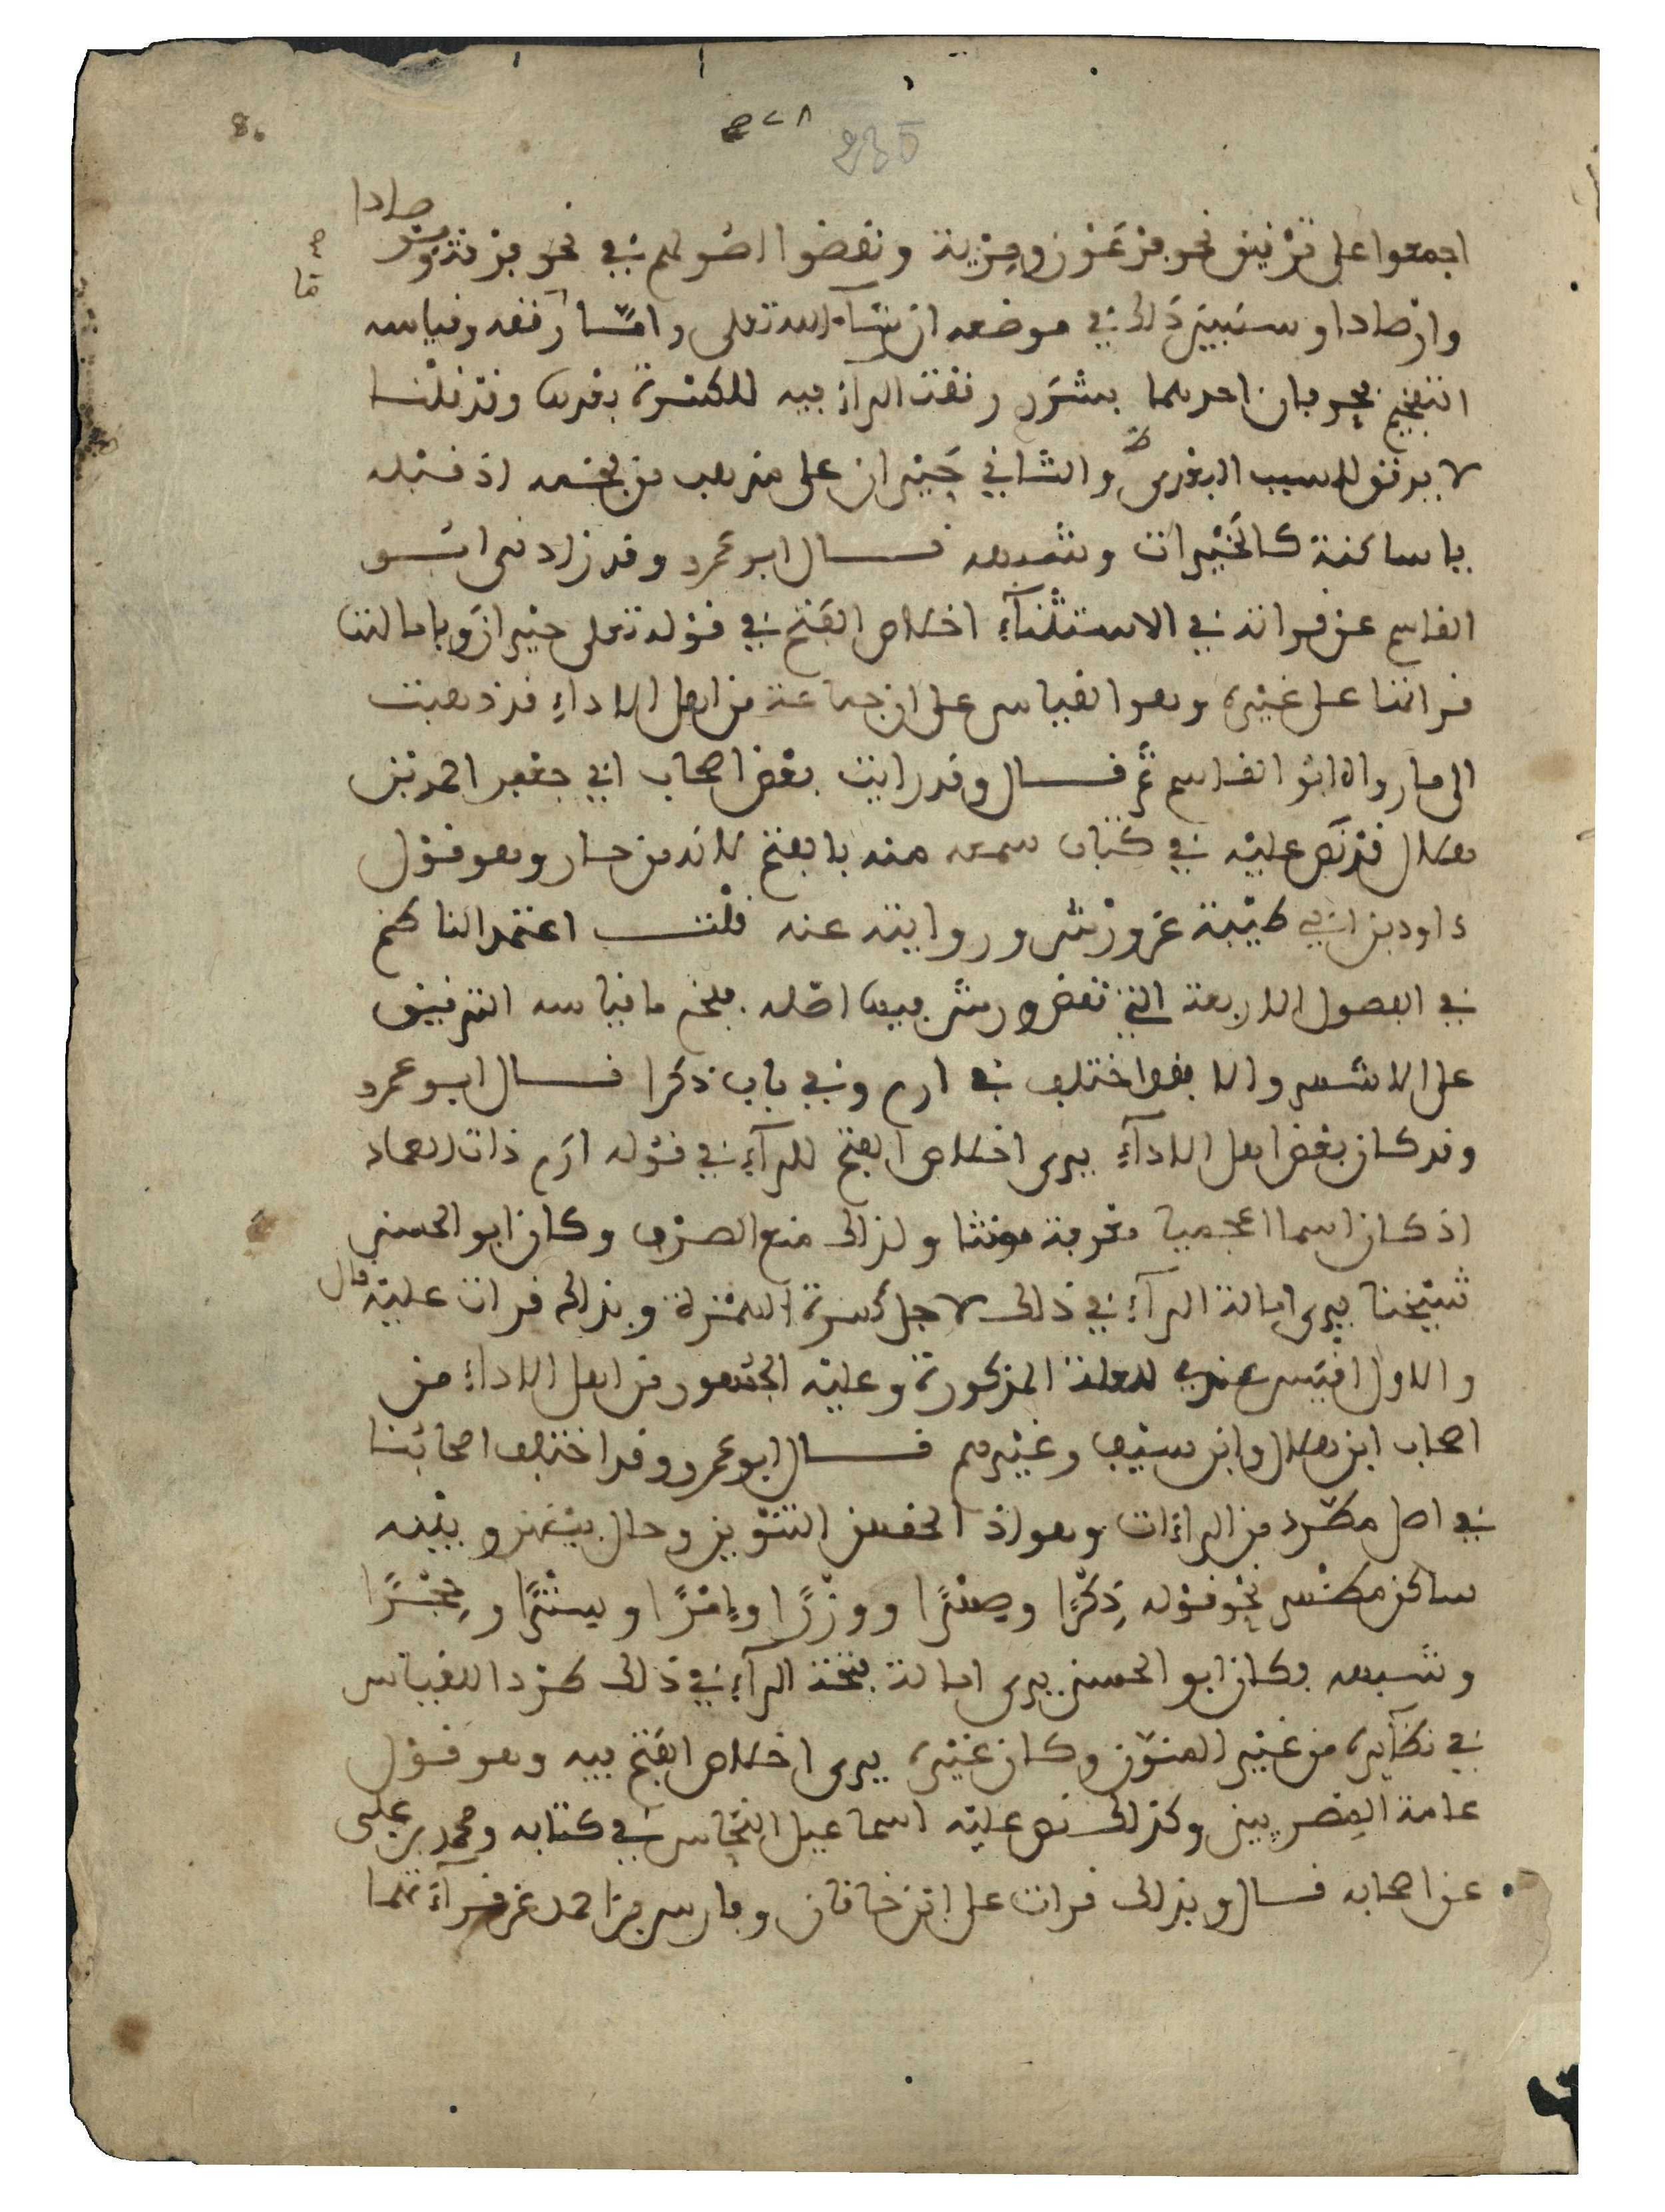 اجمعوا على ترقيق نحو فرعون ومرية ونقضوا اصولهم في نحو
وارصادا وسنبين ذلك في موضعه ان شاء الله تعلى واما رققه وقياسه
التفخيم فحرفان احدهما بشرر رققت الراء فيه للكسرة بعدها وقد قلنا
لا يرقق للسبب البعدي والثاني حيران على مذهب من فخمه اذ قبله
يا ساكنة كالخيرات وشبهه قال ابو عمرو وقد زادني ابو
القاسم عن قراته في الاستثناء اخلاص الفتح في قوله تعلى حيران وبامالتها
قراتها على غيره وهو القياس على ان جماعة من اهل الاداء قد ذهبت
الى ما رواه ابو القاسم ثم قال وقد رايت بعض اصحاب ابي جعفر احمد بن
هلال قد نص عليه في كتاب سمعه منه بالفتح للراء من حيران وهو قول
داود بن ابي طيبة عن ورش وروايته عنه قلت اعتمد الناظم
في الفصول الاربعة التي نقض ورش فيها اصله ففخم ما قياسه الترقيق
على الاشهر والا فقد اختلف في ارم وفي باب ذكرا قال ابو عمرو
وقد كان بعض اهل الاداء يرى اخلاص الفتح للراء في قوله ارم ذات العماد
اذ كان اسما اعجميا معرفة مونثا ولذلك منع الصرف وكان ابو الحسن
شيخنا يرى امالة الراء في ذلك لاجل كسرة الهمزة وبذلك قرات عليه قال
والاول اقيس عندي للعلة المذكورة وعليه الجمهور من اهل الاداء من
اصحاب ابن هلال وابن سيف وغيرهم قال ابو عمرو وقد اختلف اصحابنا
في اصل مطرد من الراءات وهو اذ الحقهن التنوين وحال بينهن وبينه
ساكن مظهر نحو قوله ذكرا وصهرا ووزرا وإمرا وسترا وحجرا
وشبهه وكان ابو الحسن يرى امالة فتحة الراء في ذلك طردا للقياس
في نظايره من غير المنون وكان غيره يرى اخلاص الفتح فيه وهو قول
عامة المصريين وكذلك نص عليه اسماعيل النحاس في كتابه ومحمد بن علي
عن اصحابه قال وبذلك قرات على ابن خاقان وفارس بن احمد عن قراءتهما